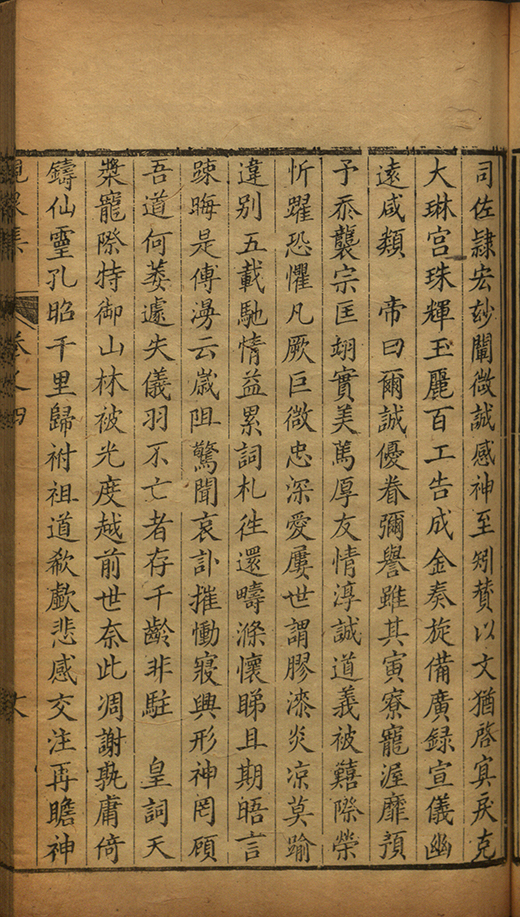 司佐隷宏玅闡微誠感神至矧賛以文猶啓㝠戾克
大琳宫珠輝玉麗百工告成金奏旋備廣録宣儀幽
遠咸類　帝曰爾誠優眷彌譽雖其寅寮寵渥靡預
予忝襲宗匡翊實美篤厚友情淳誠道義被囏際榮
忻躍恐懼凡厥巨微忠深愛屢世謂膠漆炎凉莫踰
違别五載馳情益累詞札徃還疇滌懷睇且期晤言
踈晦是傳澷云嵗阻驚聞哀訃摧慟寝興形神罔頋
吾道何萎遽失儀羽不亡者存千齡非駐　皇詞天
槳寵際特御山林被光度越前世奈此凋謝孰庸倚
鑄仙靈孔昭千里歸祔祖道欷歔悲感交注再瞻神
峴泉集　卷之四